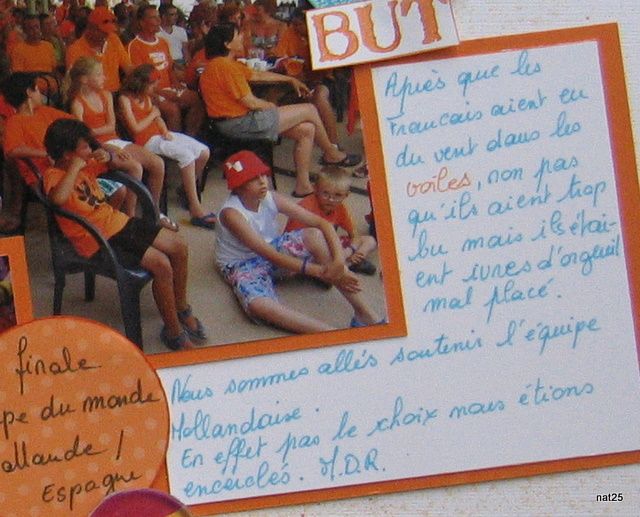 BUT
Après que les
Francais aient eu
du vent dans les
voiles, non pas
qu'ils aient trop
bu mais ils étai-
ent ivres d'orgueil
mal placé.
Nous sommes allés soutenir l'équipe
Hollandaise.
En effet pas le choix nous étions
encerclés. M.D.R.
finale
pe du monde
ollande /
Espagne
nat25